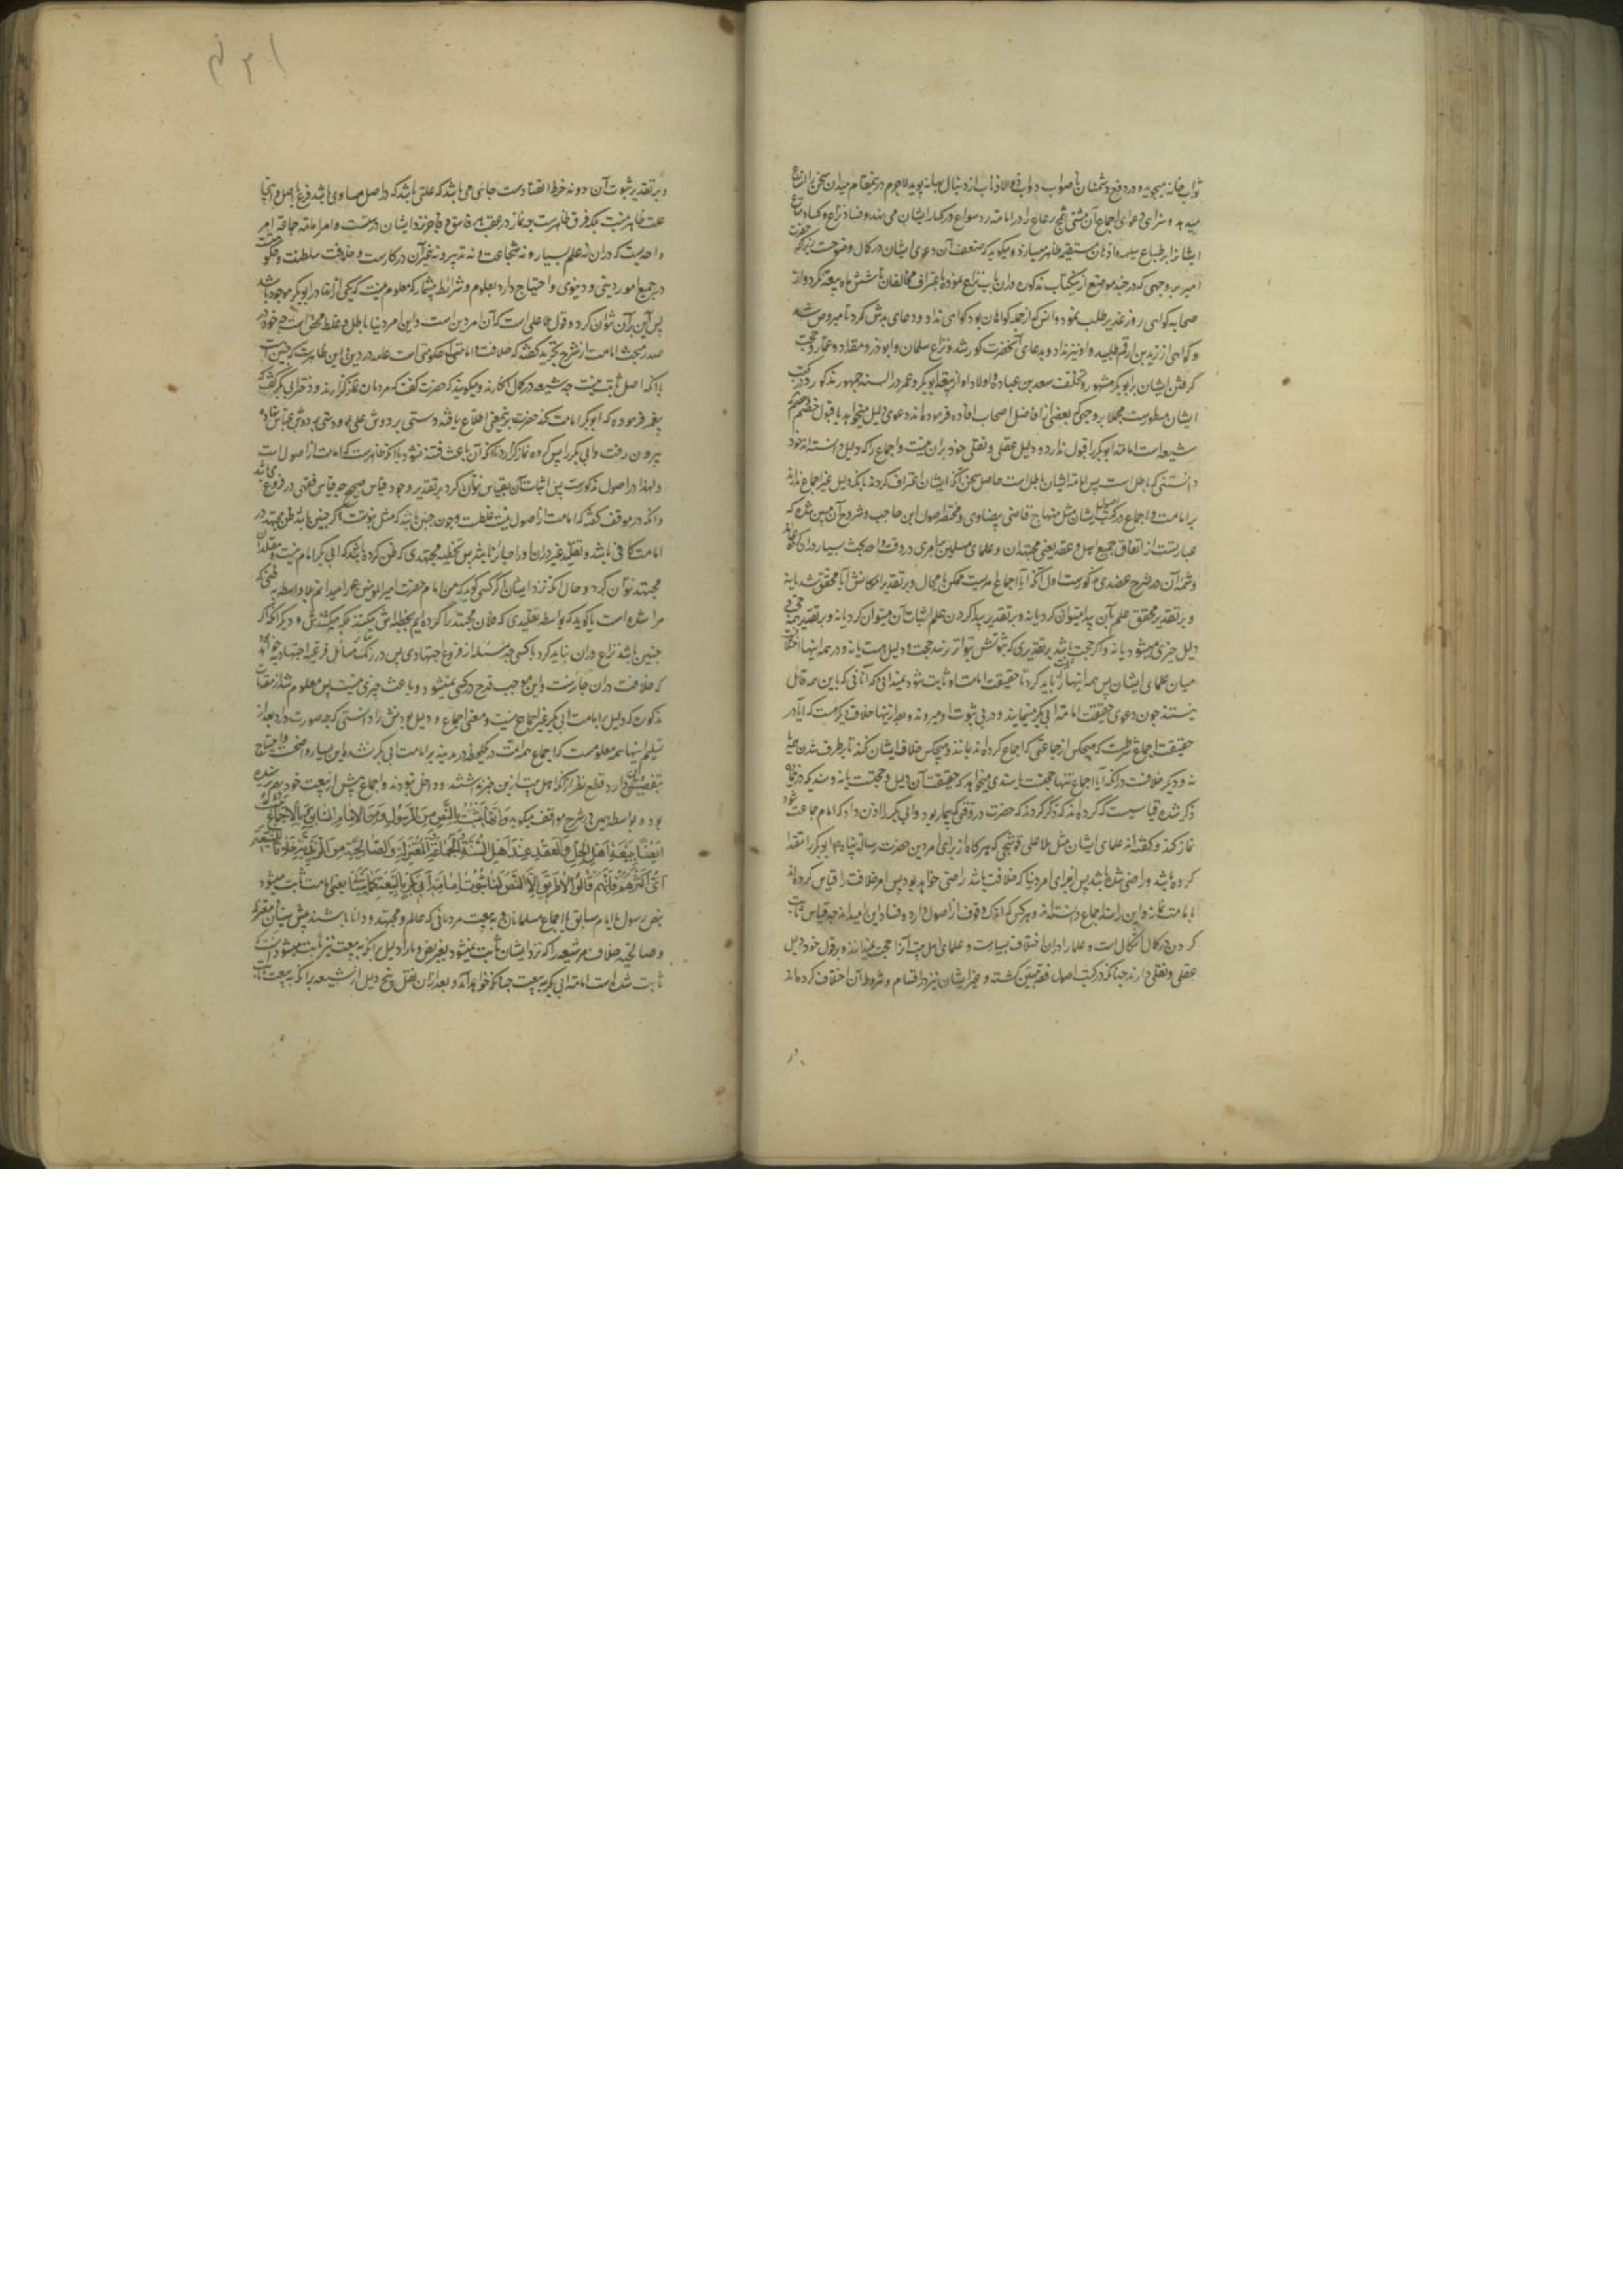 ثواب خانه میجوید و در دفع دشمنان صواب
میدهد و سزای دعوای اجماع آن مشتی رعاع را در امامت
ایشانرا بر طباع سلیمه و اذهان مستقیمه ظاهر میسازد و میگوید که ضعف آن دعوی ایشان در کمال وضوحست
امیر بر وجهی که در چند موضع ازین کتاب مذکور شده و در آن باب نزاع نموده باعتراف مخالفان تا شش ماه بیعت نکرد و از
صحابه گواهی روز غدیر طلب نمود و انس که از جمله گواهان بود گواهی نداد و دعای بدش کرد تا مبروص شد
و گواهی از زید بن ارقم طلبید و او نیز نداد و بدعای آنحضرت کور شد و نزاع سلمان و ابوذر و مقداد و عمار و حجت
گرفتن ایشان بر ابوبکر مشهور و تخلف سعد بن عباده و اولاد او از بیعت ابوبکر و عمر در السنه جمهور مذکور و در کتب
ایشان مسطورست مجملا بر وجهی که بعضی از افاضل اصحاب افاده فرموده‌اند دعوی دلیل میخواهد یا قبول خصم و خصم
شیعه است امامت ابوبکر را قبول ندارد و دلیل عقلی و نقلی خود بر آن نیست و اجماع را که دلیل دانسته‌اند خود
دانستی که باطل است پس امامت ایشان باطل است حاصل سخن آنکه ایشان اعتراف کردند بآنکه دلیل غیر اجماع ندارند
بر امامت و اجماع در کتب اصول ایشان مثل منهاج قاضی بیضاوی و مختصر اصول ابن حاجب و شروح آن مبین شده که
عبارتست از اتفاق جمیع اهل حل و عقد یعنی مجتهدان و علمای مسلمین بر امری در وقت واحد و بحث بسیار در آن کرده‌اند
و شمه از آن در شرح عضدی مذکورست اول آنکه آیا اجماع امریست ممکن یا محال و بر تقدیر امکانش آیا محقق شد یا نه
و بر تقدیر تحقق علم بآن پیدا میتوان کرد یا نه و بر تقدیر پیدا کردن علم اثبات آن میتوان کرد یا نه و بر تقدیر
دلیل چیزی میشود یا نه و اگر حجت باشد بر تقدیری که ثبوتش بتواتر نرسد حجت و دلیل هست یا نه و در همه اینها اختلاف
میان علمای ایشان پس همه اینها را ثابت باید کرد تا حقیقت امامت او ثابت شود نمیدانم که آنانی که باین همه قائل
نیستند چون دعوی حقیقت امامت ابی بکر مینمایند و در پی ثبوت او میروند و بعد ازینها خلاف دیگر هست که آیا در
حقیقت اجماع شرطست که هیچکس از جماعتی که اجماع کرده‌اند نمانند و هیچکس خلاف ایشان نکند تا برطرف شدن همه یا
نه و دیگر خلافست در آنکه آیا اجماع تنها حجت است یا سندی میخواهد که حقیقت آن دلیل و حجتست یا نه و سندیکه درینجا
ذکر شده قیاسیست که کرده‌اند که ذکر کردند که حضرت در وقتی که بیمار بود و ابی بکر را اذن داد که امام جماعت شود
نماز کند و گفته‌اند علمای ایشان مثل ملا علی قوشچی که هرگاه از برای امر دین حضرت رسالت پناه ابوبکر را مقتدا
کرده باشد و راضی شده باشد پس از برای امر دنیا که خلافت باشد راضی خواهد بود پس امر خلافت را قیاس کرده‌اند
بامامت نماز و این را سند اجماع دانسته‌اند و هر کس که اندک وقوف از اصول دارد فساد این را میداند چه قیاس ثابت
کردن در کمال اشکال است و علما را در آن اختلاف بسیارست و علمای اهل بیت آنرا حجت نمیدانند و بر قول خود دلیل
عقلی و نقلی دارند چنانکه در کتب اصول فقه مبین گشته و غیر ایشان نیز در اقسام و شروط آن اختلاف کرده‌اند
و بر تقدیر ثبوت آن جائی می باشد که علتی باشد که در اصل مساوی باشد فرع باصل و اینجا
علت ظاهر نیست بلکه فرق ظاهرست چه نماز در عقب هر فاسق و فاجر نزد ایشان درستست و امر امامت جماعت امر
واحدیست که در آن نه علم بسیار و نه شجاعت و نه تدبیر و نه غیر آن در کارست و خلافت سلطنت و حکومتست
در جمیع امور دینی و دنیوی و احتیاج دارد بعلوم و شرائط بیشمار که معلوم نیست که یکی از آنها در ابوبکر موجود باشد
پس این بر آن نتوان کرد و قول ملا علی است که آن امر دین است و این امر دنیا باطل و غلط محض است چه خود در
صدر مبحث امامت از شرح تجرید گفته که خلافت و امامت حکومتی است عامه در دین و دنیا و این ظاهرست که چنین است
با آنکه اصل ثابت نیست چه شیعه در کمال انکارند و میگویند که حضرت گفت که مردمان نماز گزارند و دختر ابی بکر گفت که
پیغمبر فرموده که ابوبکر امامت کند حضرت برینمعنی اطلاع یافته دستی بر دوش علی و دستی بر دوش عباس نهاده
بیرون رفت و ابی بکر را پس کرده نماز گزارد تا آنکه آن باعث فتنه نشود با آنکه ظاهرست که امامت از اصول است
و لهذا در اصول مذکورست پس اثبات آن بقیاس نتوان کرد بر تقدیر وجود قیاس صحیح چه قیاس فقهی در فروع میباشد
و آنکه در مواقف گفته که امامت از اصول نیست غلطست و چون چنین باشد که مثل نبوتست اگر چنین باشد ظن مجتهد در
امامت کافی باشد و تقلید غیر در آن روا جایز نباشد پس تخطیه مجتهدی که ظن کرده باشد که ابی بکر امام نیست و مقلدان
مجتهد نتوان کرد و حال آنکه نزد ایشان اگر کسی گوید که من امام حضرت امیرالمؤمنین علی را میدانم بلاواسطه بظنی که
مرا شده است یا گوید که بواسطه تقلیدی که فلان مجتهد را کرده‌ام تخطیه‌اش میکنند بلکه میکشندش و دیگر آنکه اگر
چنین باشد نزاع در آن نباید کرد با کسی چه مسئله از فروع اجتهادی پس در رنگ سائر مسائل فرعیه اجتهادیه خواهد بود
که خلافت در آن جایزست و این موجب قدح در کسی نمیشود و باعث چیزی نیست پس معلوم شد از مقدمات
مذکورت که دلیل بر امامت ابی بکر غیر اجماع نیست و معنی اجماع و دلیل بودنش را دانستی که چه صورت دارد بعد از
تسلیم اینها همه معلومست که اجماع همه امت در یکوقت در مدینه بر امامت ابی بکر نشده و این بسیار واضحست و احتیاج
بتفصیلش ندارد قطع نظر از آنکه اهل بیت ازین خبر نداشتند و داخل نبودند و اجماع پیش از بیعت خود بهم نرسیده
بود و بواسطه همین در شرح مواقف میگوید وانها تثبت بالنص من الرسول ومن الامام السابق بالاجماع
ایضا ببیعة اهل الحل والعقد عند اهل السنة والجماعة والمعتزلة والصالحیة من الزیدیة خلافا للشیعة
ای اکثرهم فانهم قالوا لا طریق الا النص لنا ثبوت امامة ابی بکر بالبیعة کما سیأتی یعنی امامت ثابت میشود
بنص رسول یا امام سابق یا اجماع مسلمانان و به بیعت مردمانی که عالم و مجتهد و دانا باشند پیش سنیان و معتزله
و صالحیه خلاف مر شیعه را که نزد ایشان ثابت نمیشود بغیر نص و ما را دلیل بر آنکه به بیعت نیز ثابت میشود آنست که
ثابت شده است امامت ابی بکر به بیعت چنانکه خواهد آمد و بعد از آن نقل پنج دلیل از شیعه بر آنکه به بیعت ثابت